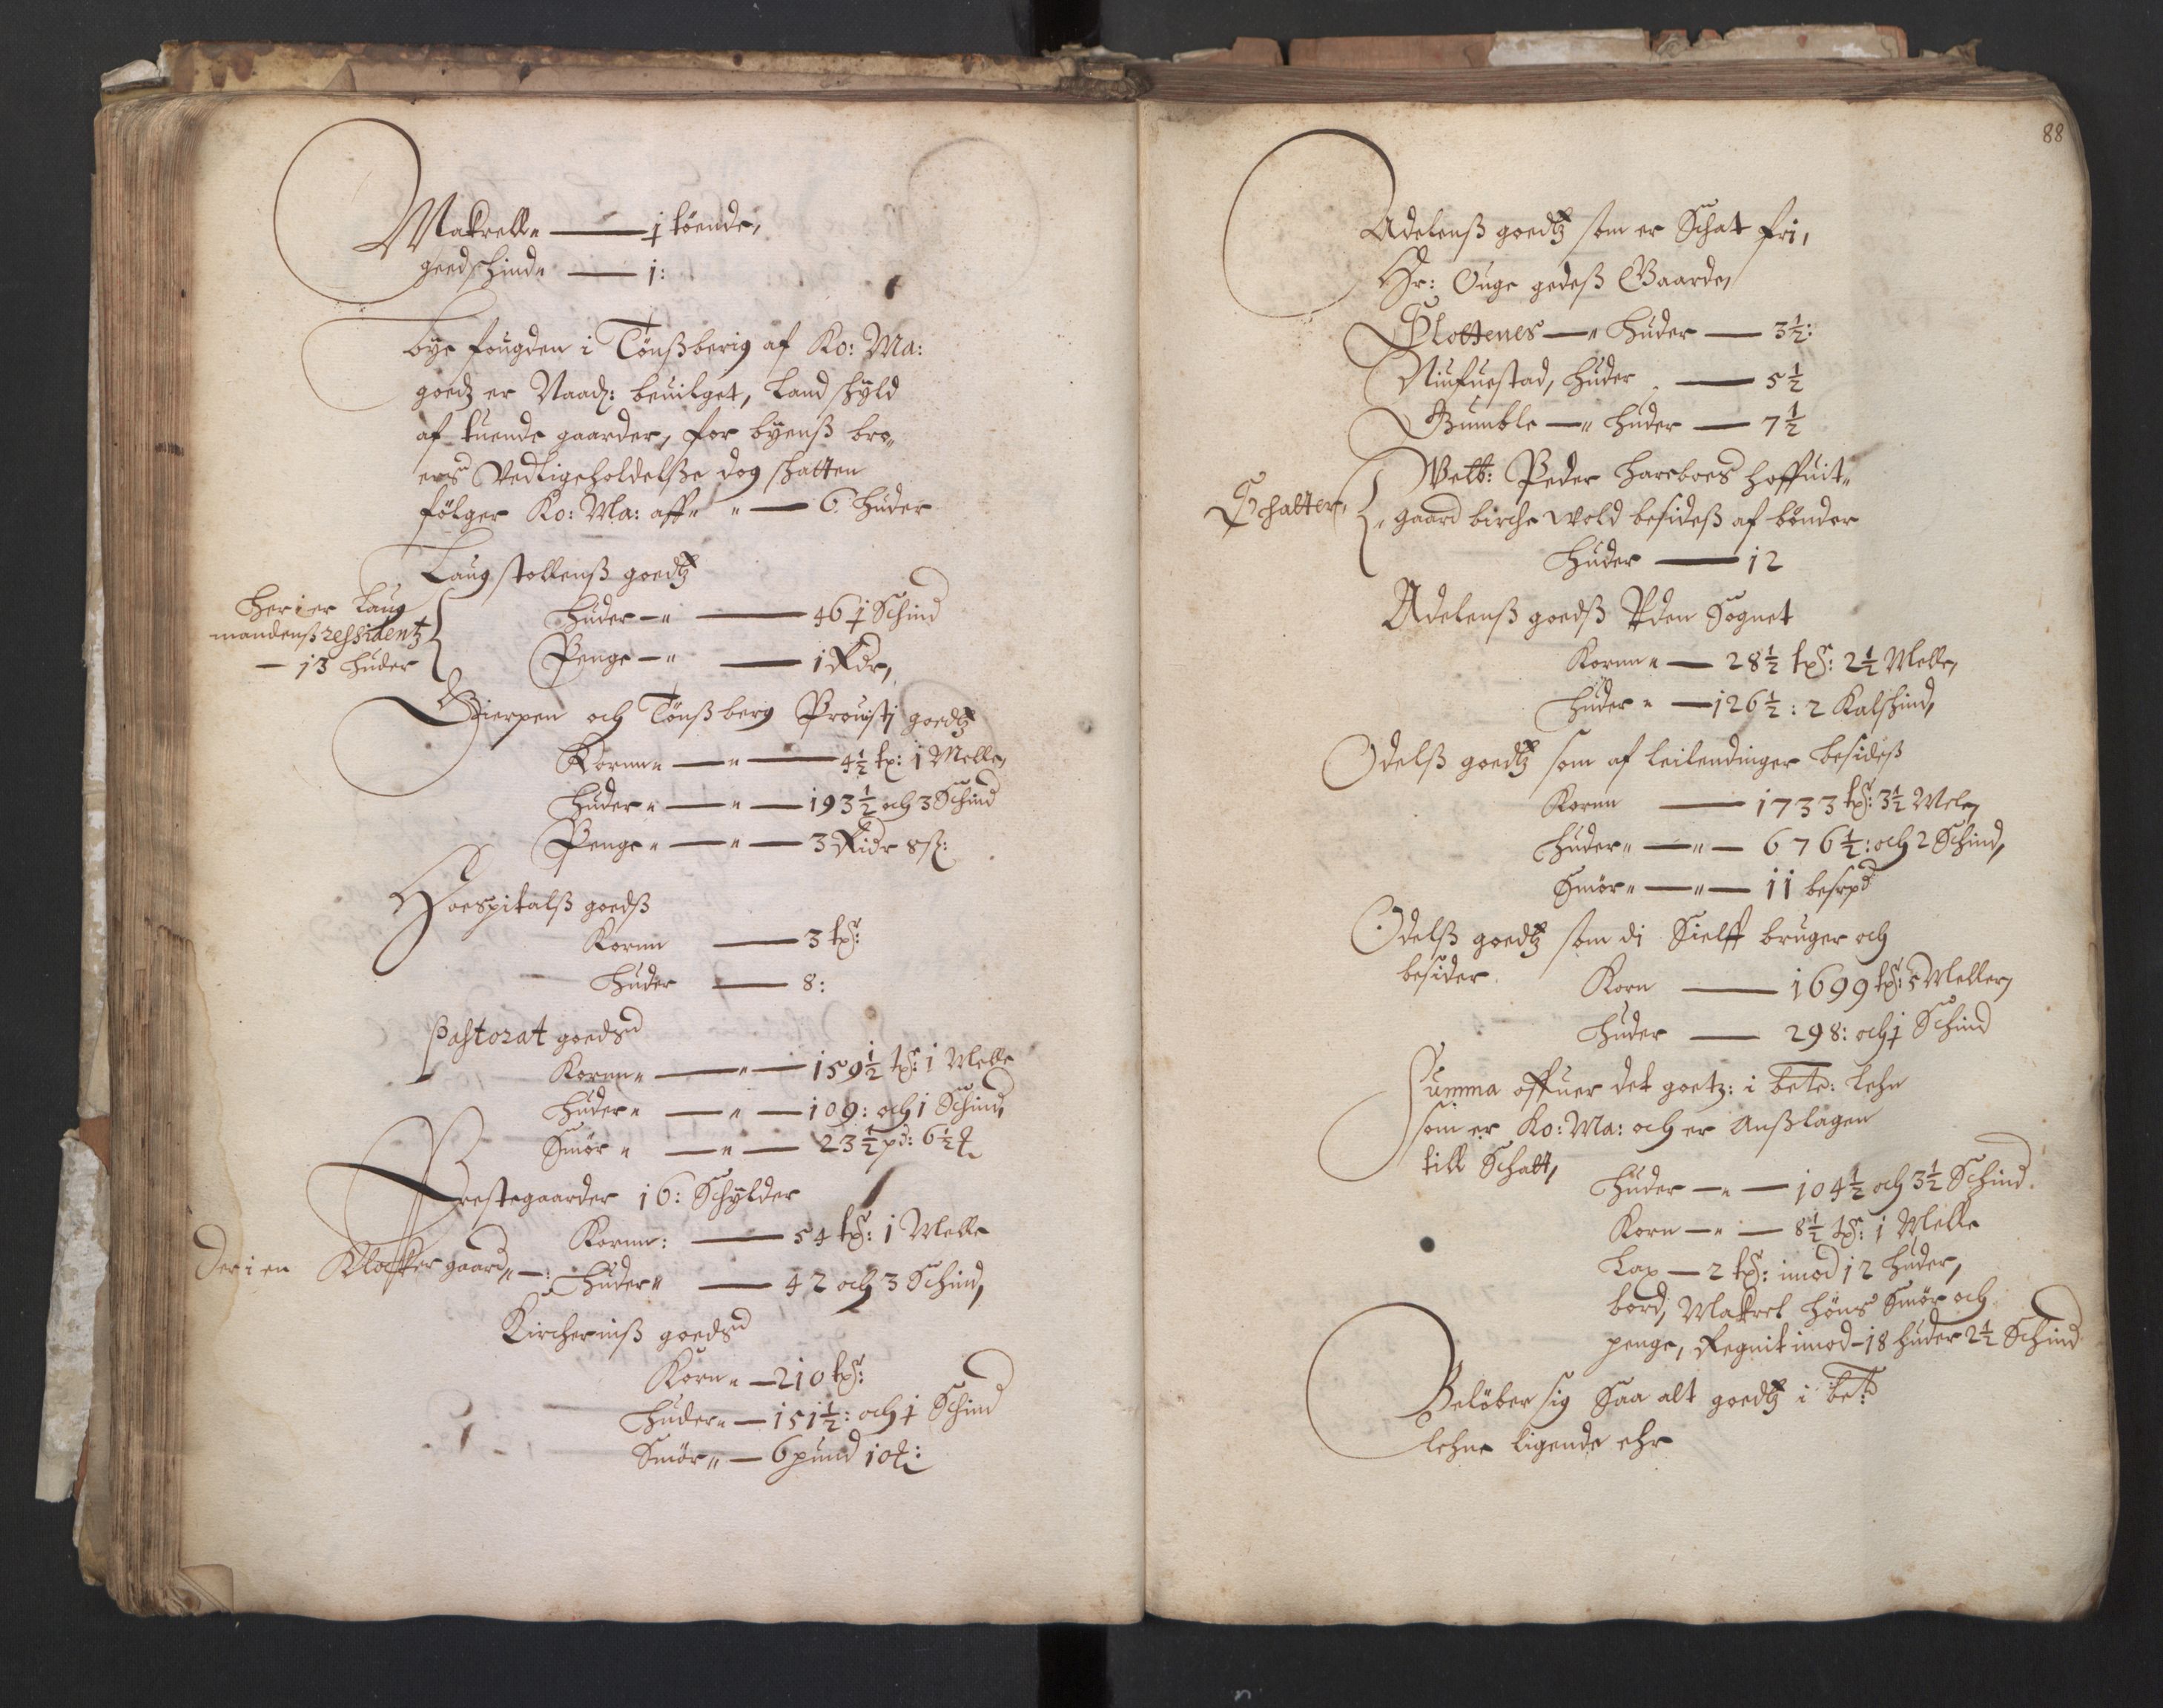 Makrell„ — ½ tøende,
geedschind„ — 1:
bye fougden i Tønßberig af Ko: Ma:
goedz er Naad: beuilget, Land skyld
af tuende gaarder, for byenß bro„
ers Vedligeholdelsse dog skatten
følger Ko: Ma: aff„ „ — 6. huder
Laugstollenß goedtz
Huder — „ — 46 ½ Schind
Her i er Laug
mandenß ressidentz
— 13 huder
Penge — „ — 1 Rdr,
Gierpen och Tønßberg Prousti goedtz
Kornn„ — „ — 4½ tp: 1 Melle,
Huder„ — „ — 193½ och 3 Schind
Penge„ — „ — 3 Ridr 8 ß:
Hoespitalß goedß
Kornn — 3 tp:
Huder — 8:
Pastorat goeds
Kornn„ — „ — 159½ tp: 1 Melle
Huder„ — „ — 109: och 1 Schind,
Smør„ — „ — 23½ pd: 6½ ℔
Prestegaarder 16: Schylder
Kornn: — 54 tp: 1 Melle
Der i en Klocker gaard„ — : Huder„ — 42 och 3 Schind,
Kircherniß goeds
Korn„ — 210 tp:
Huder„ — 151½: och ½ Schind
Smør„ — 6 pund 10 ℔:
88
Adelenß goedtz som er Schat fri,
Hr: Ouge gedeß Gaarde,
Slottenes — „ Huder — 3½:
Niufuestad, huder — 5½
Gumble — „ huder — 7½
Schatter,
Welb: Peder harboes hoffuit„
gaard birche wold besideß af bønder
Huder — 12
Adelenß goedß Vden Sognet
Kornn„ — 28½ tp: 2½ Melle,
Huder„ — 126½: 2 Kalskind,
Odelß goedtz som af leilendinger besideß
Kornn — 1733 tp: 3½ Mele,
Huder„ — „ — 676½: och 2 Schind,
Smør„ — „ — 11 besrpd
Odelß goedtz som di Sielff bruger och
besider
Korn — 1699 tp: 5 Meller,
Huder — 298: och ½ Schind
Summa offuer det goetz: i bete: Lehn
som er Ko: Ma: och er Anßlagen
till Schatt,
Huder — „ — 104½ och 3½ Schind.
Korn — „ — 8½ tp: 1 Melle
Lax — 2 tp: imod 12 huder,
bord, Makrel høns Smør och
penge, Regnit imod - 18 huder 2½ Schind
Beløber sig Saa alt goedtz i bete
lehne ligende ehr